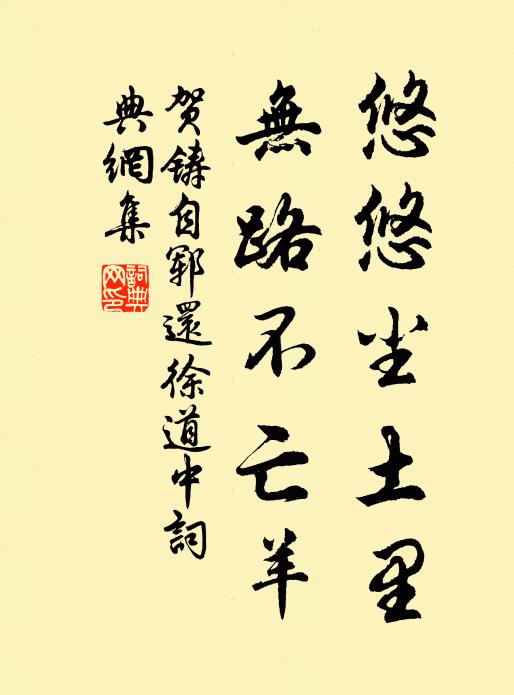 悠悠尘土里
無路不亡羊
贺鑄自鄆還徐道中詞
典網集
詞典網印